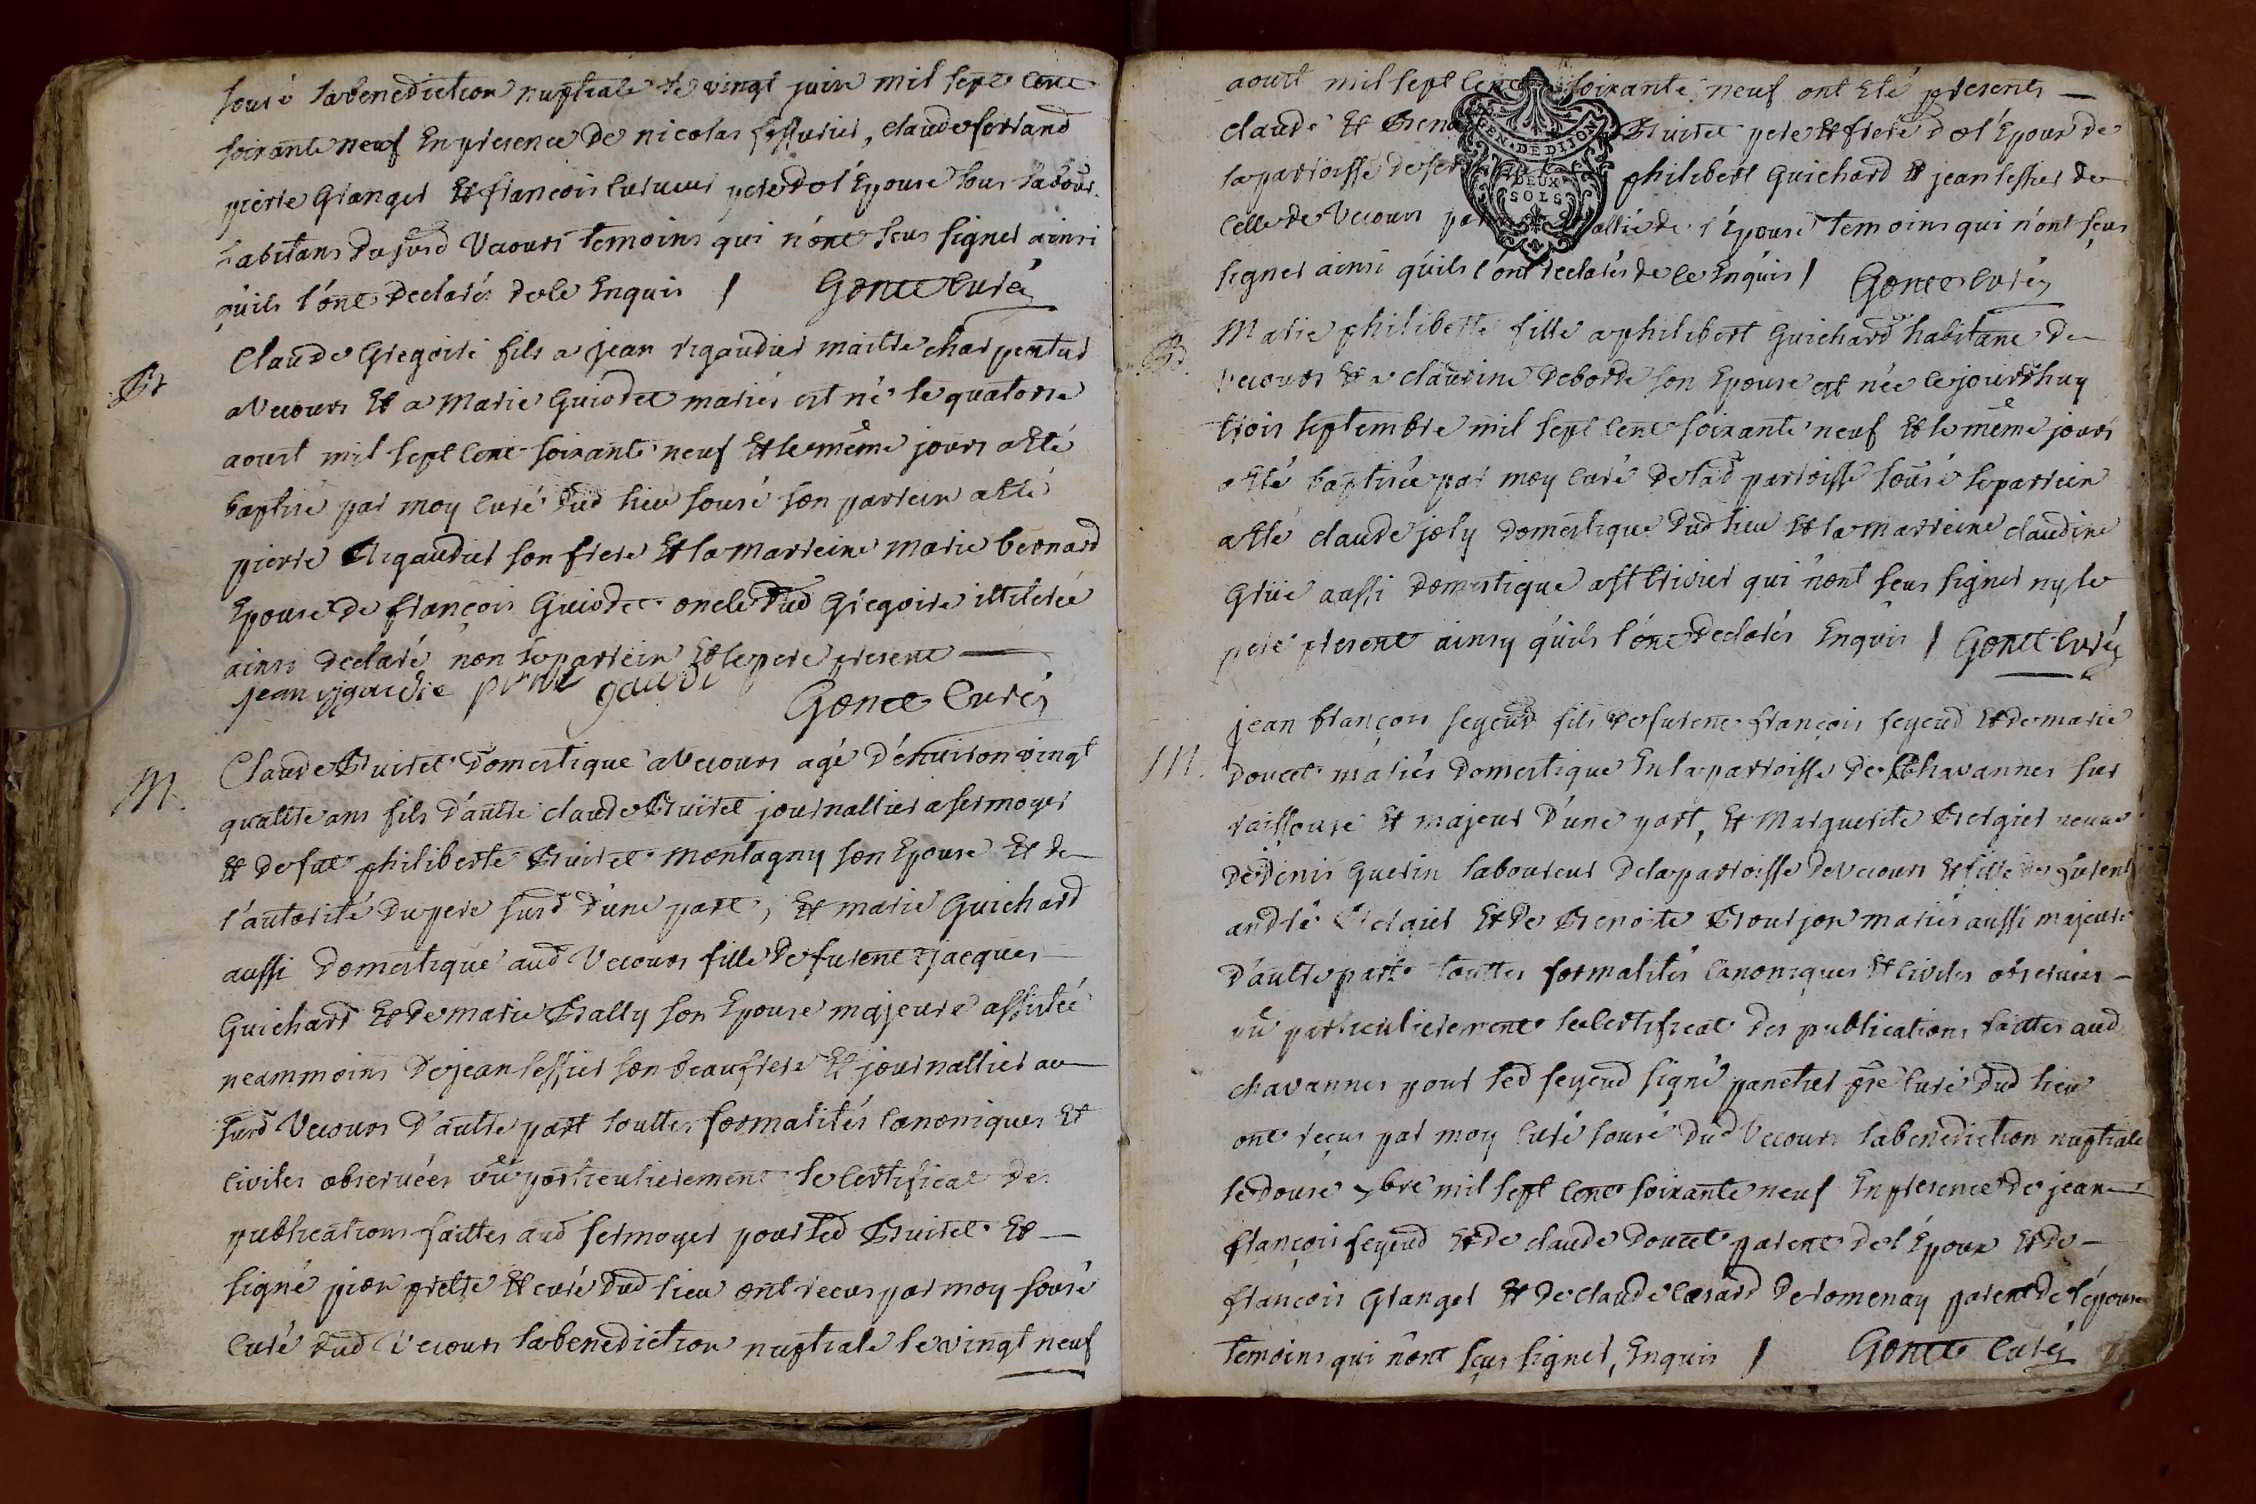 sousé la benediction nuptiale le vingt juin mil sept cent
soixante neuf En presence de nicolas, claude ferrand
pierre Granger Et françois pere de l'Epouse tous labour.
habitans du susd Vecours temoins qui n'ont seus signer ainsi
qu'ils l'ont declarés de le Enquis / Gonct Curé
Bt
Claude Gregoire fils a jean rigaudier maitre charpentier
a Vecours Et a Marie Guiodet mariés est né le quatorse
aoust mil sept cent soixante neuf Et le même jours a Eté
baptisé par moy Curé dud lieu sousé son parrein a Eté
pierre Rigaudier son frere Et la marreine marie bernard
Epouse de françois Guiodet oncle dud Gregoire illiterée
ainsi declaré non le parrein Et le pere present
jean rigaudie
Gonct Curé
M.
Claude Buiret Domestique a Vecours agé d'environ vingt
quattre ans fils d'autre claude Buiret journallier a sermoyer
Et de fut philiberte Buiret montagny son Epouse Et de
l'autorité du pere susd d'une part, Et marie Guichard
aussi Domestique aud Vecours fille de furent jacques
Guichard Et de marie Bally son Epouse majeure assistée
neammoins de jean tessier son beaufrere Et journallier au
susd Vecours d'autre part touttes formalités canoniques Et
civiles observées vû particulierement le certificat des
publications faittes aud sermoyer pour led Buiret Et
signé pion pretre Et curé dud lieu ont recus par moy sousé
Curé dud Vecours la benediction nuptiale le vingt neuf
aoust mil sept cent soixante neuf ont Eté presents
claude Et Buiret pere Et frere de l'Epoux de
la parroisse de philibert Guichard Et jean tessier de
celle de Vecours allié de l'Epouse temoins qui n'ont seus
signer ainsi qu'ils l'ont declarés de le Enquis / Gonct Curé
GEN. DE DIJON
DEUX
SOLS
B.
Marie philiberte fille a philibert Guichard habitant de
Vecours Et a claudine deborde son Epouse est née cejourdhuy
trois septembre mil sept cent soixante neuf Et le même jours
a Eté baptisée par moy Curé de lad parroisse sousé le parrein
a Eté claude joly domestique dud lieu Et la marreine claudine
Grüe aussi domestique a St trivier qui n'ont seus signer ny le
pere present ainsy qu'ils l'ont declarés Enquis / Gonct Curé
M.
jean françois feyeud fils de furent françois feyeud Et de marie
doucet mariés domestique En la parroisse de chavannes sur
raissouse Et majeur d'une part, Et Marguerite Bergier veuve
de denis Guerin laboureur de la parroisse de Vecours Et fille de furent
andré Bergier Et de Benoite Bourjon mariés aussi majeure
d'autre part touttes formalités canoniques Et civiles observées
vû particulierement le certificat des publications faittes aud
chavannes pour led feyeud signé panetier ptre Curé dud lieu
ont reçus par moy Curé sousé dud Vecours la benediction nuptiale
le douse 7bre mil sept cent soixante neuf En presence de jean
françois feyeud Et de claude doucet parent de l'Epoux Et de
françois Granger Et de claude de romenay parent de l'épouse
temoins qui n'ont seus signer, Enquis / Gonct Curé